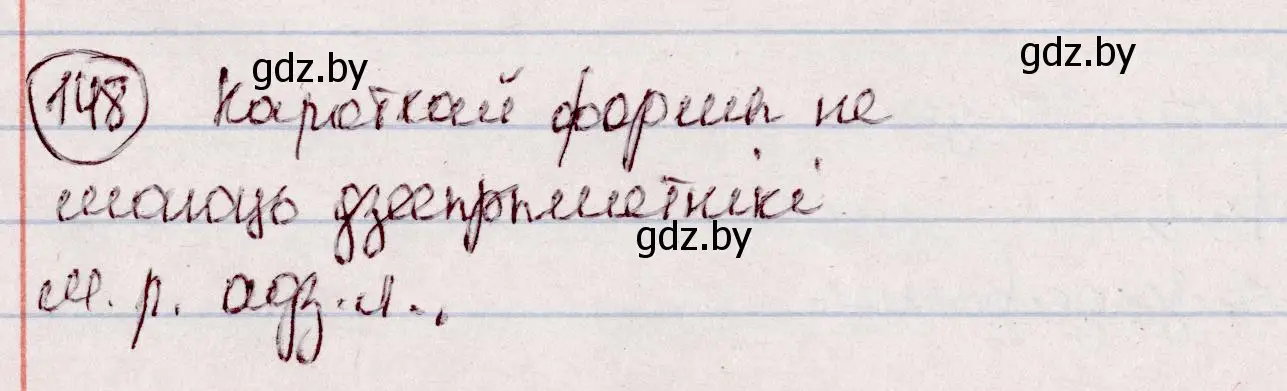 gdz.by
gdz.by
148 Кароткай формы не
маюць дзеепрыметнікі
gdz.by
м. р. адз. л.,